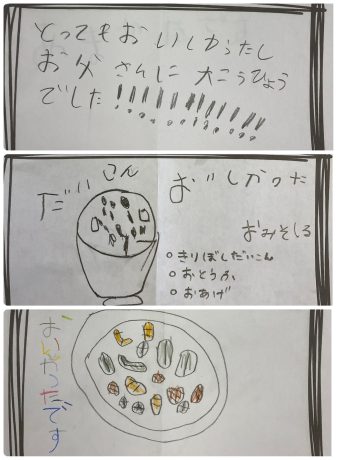 とってもおいしかったし
お父さんに大こうひょう
でした!!!!!!!!!!!!
だいこん
おいしかった
おみそしる
○きりぼしだいこん
○おとうふ
○おあげ
おいしかったです